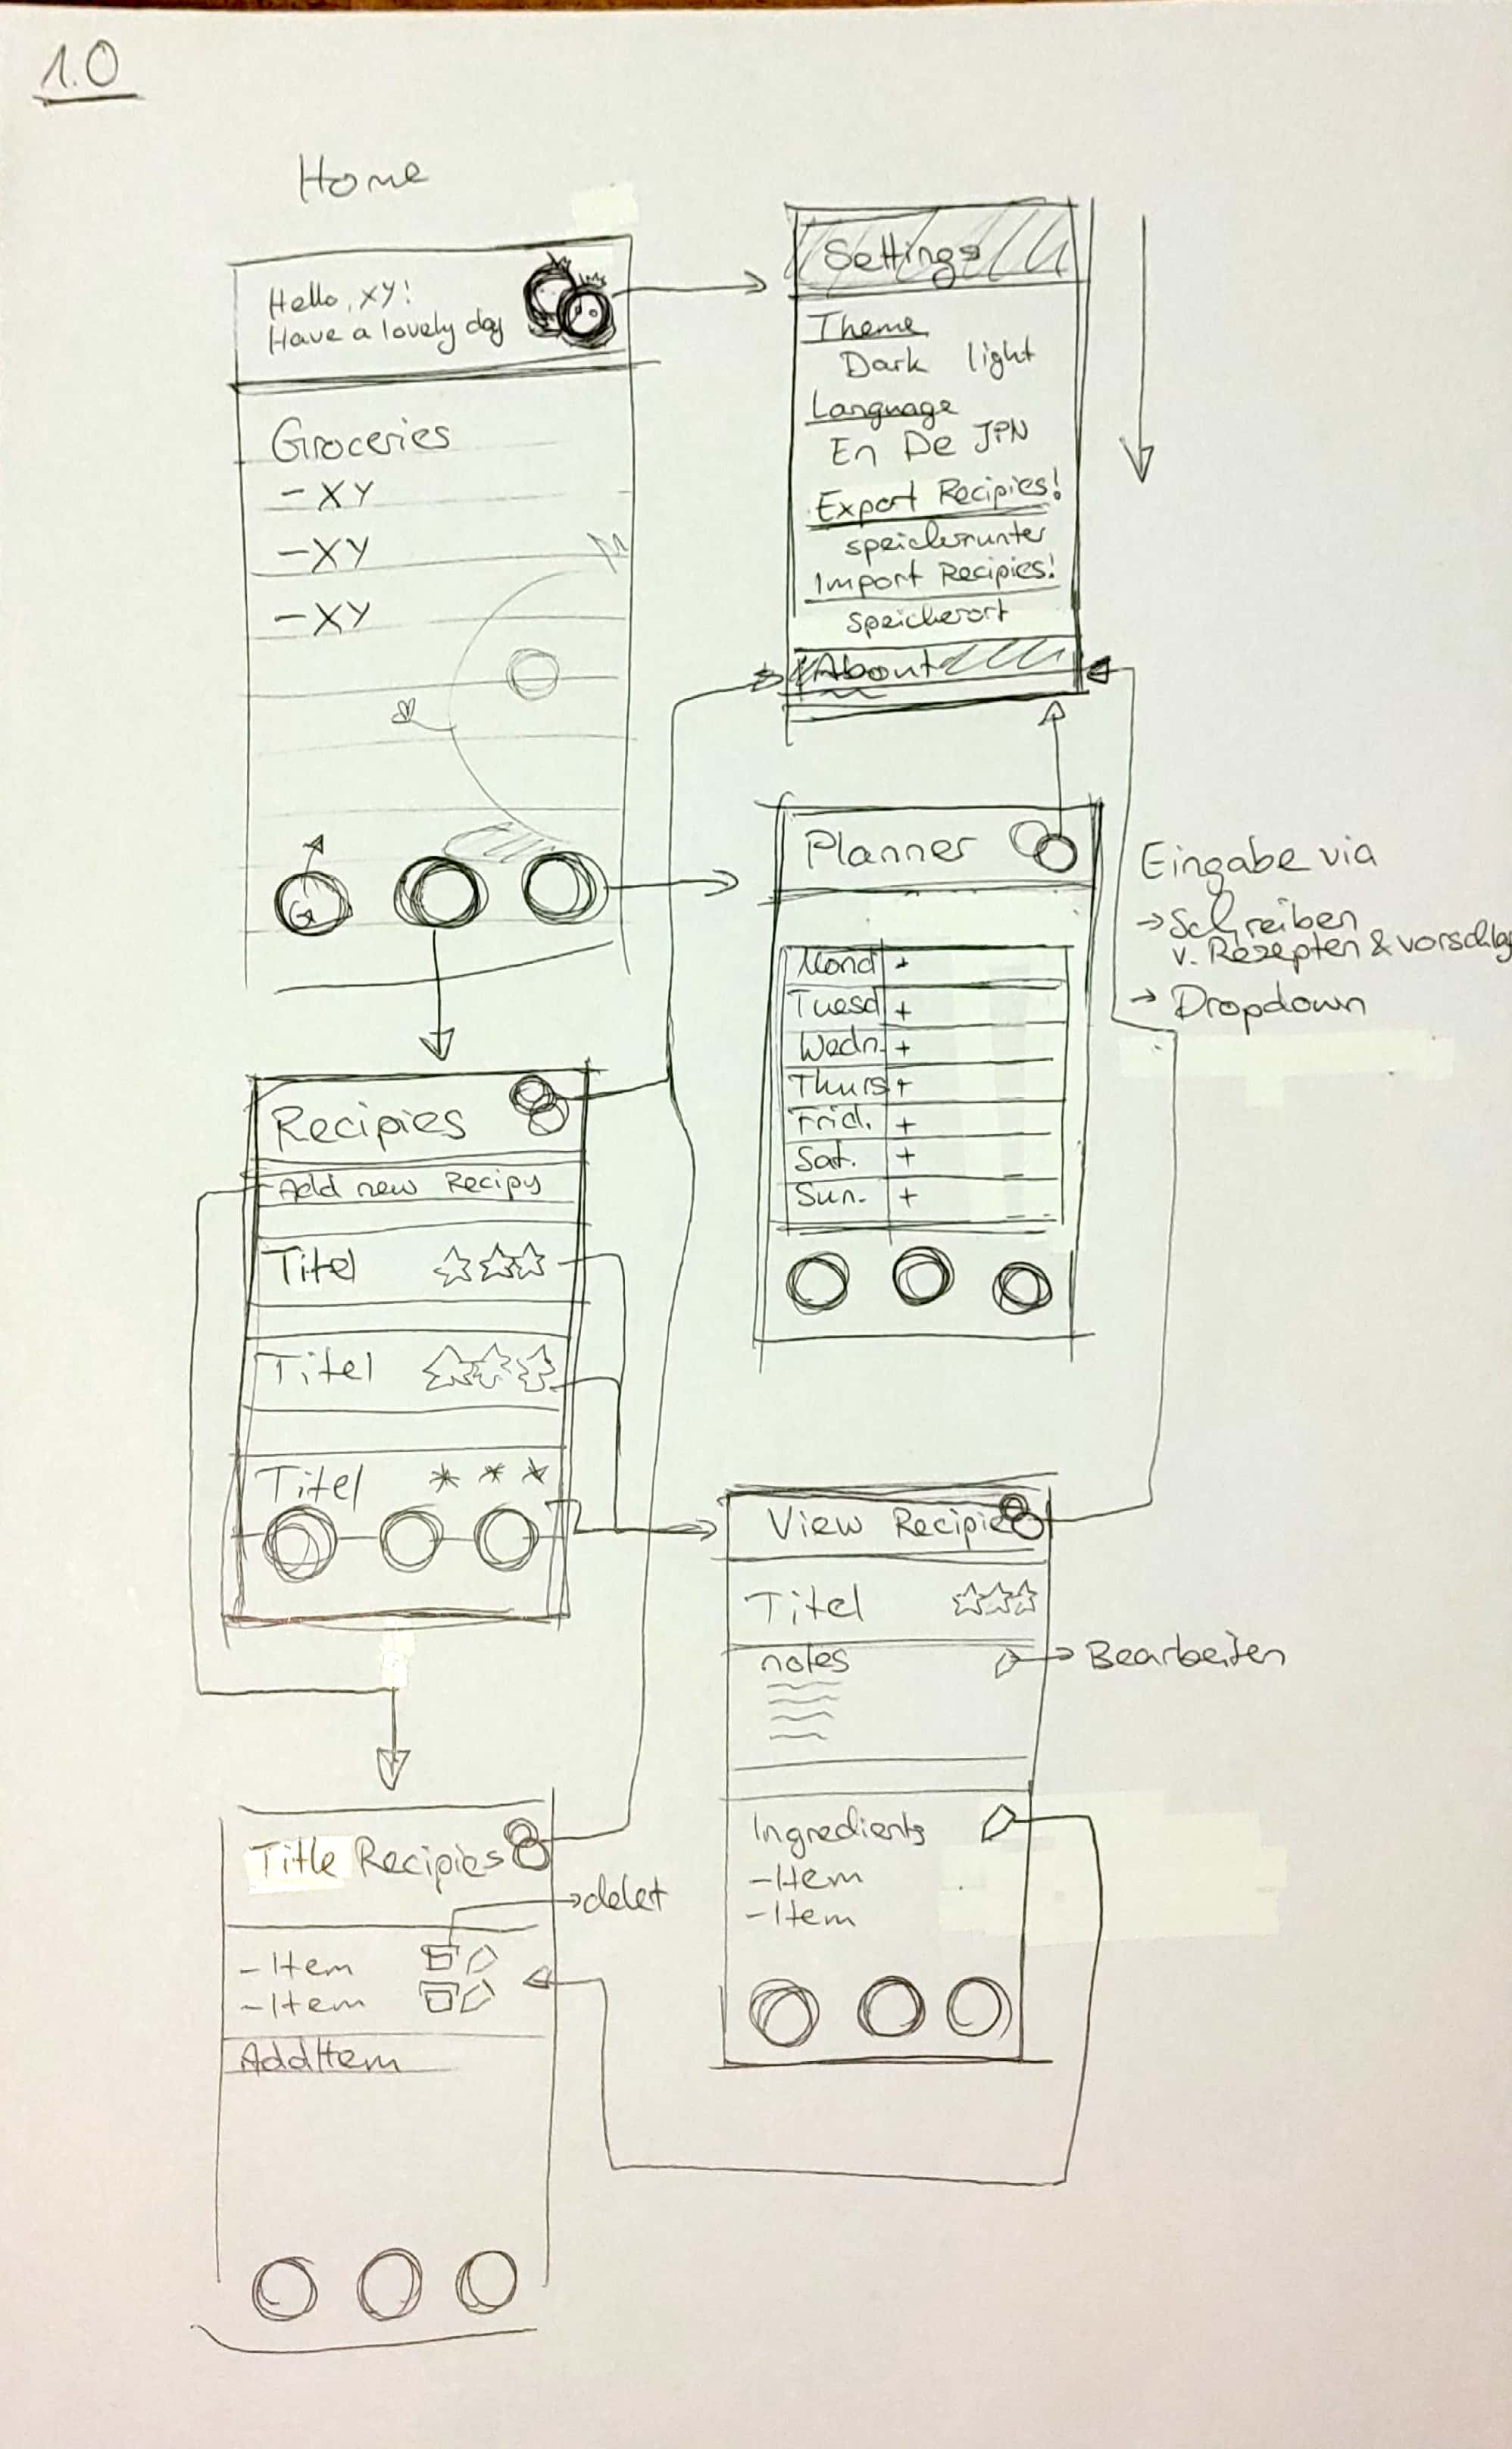 1.0
Home
Hello, XY!
Have a lovely day
Groceries
- XY
- XY
- XY
G
Settings
Theme
Dark light
Language
En De JPN
Export Recipies!
speichernunter
Import Recipies!
speicherort
About
Planner
Mond +
Tuesd +
Wedn. +
Thurs +
Frid. +
Sat. +
Sun. +
Eingabe via
→ Schreiben
v. Rezepten & vorschlag
→ Dropdown
Recipies
Add new Recipy
Titel
Titel
Titel
View Recipie
Titel
notes
Bearbeiten
Ingredients
- Item
- Item
Title Recipies
delet
- Item
- Item
Add Item